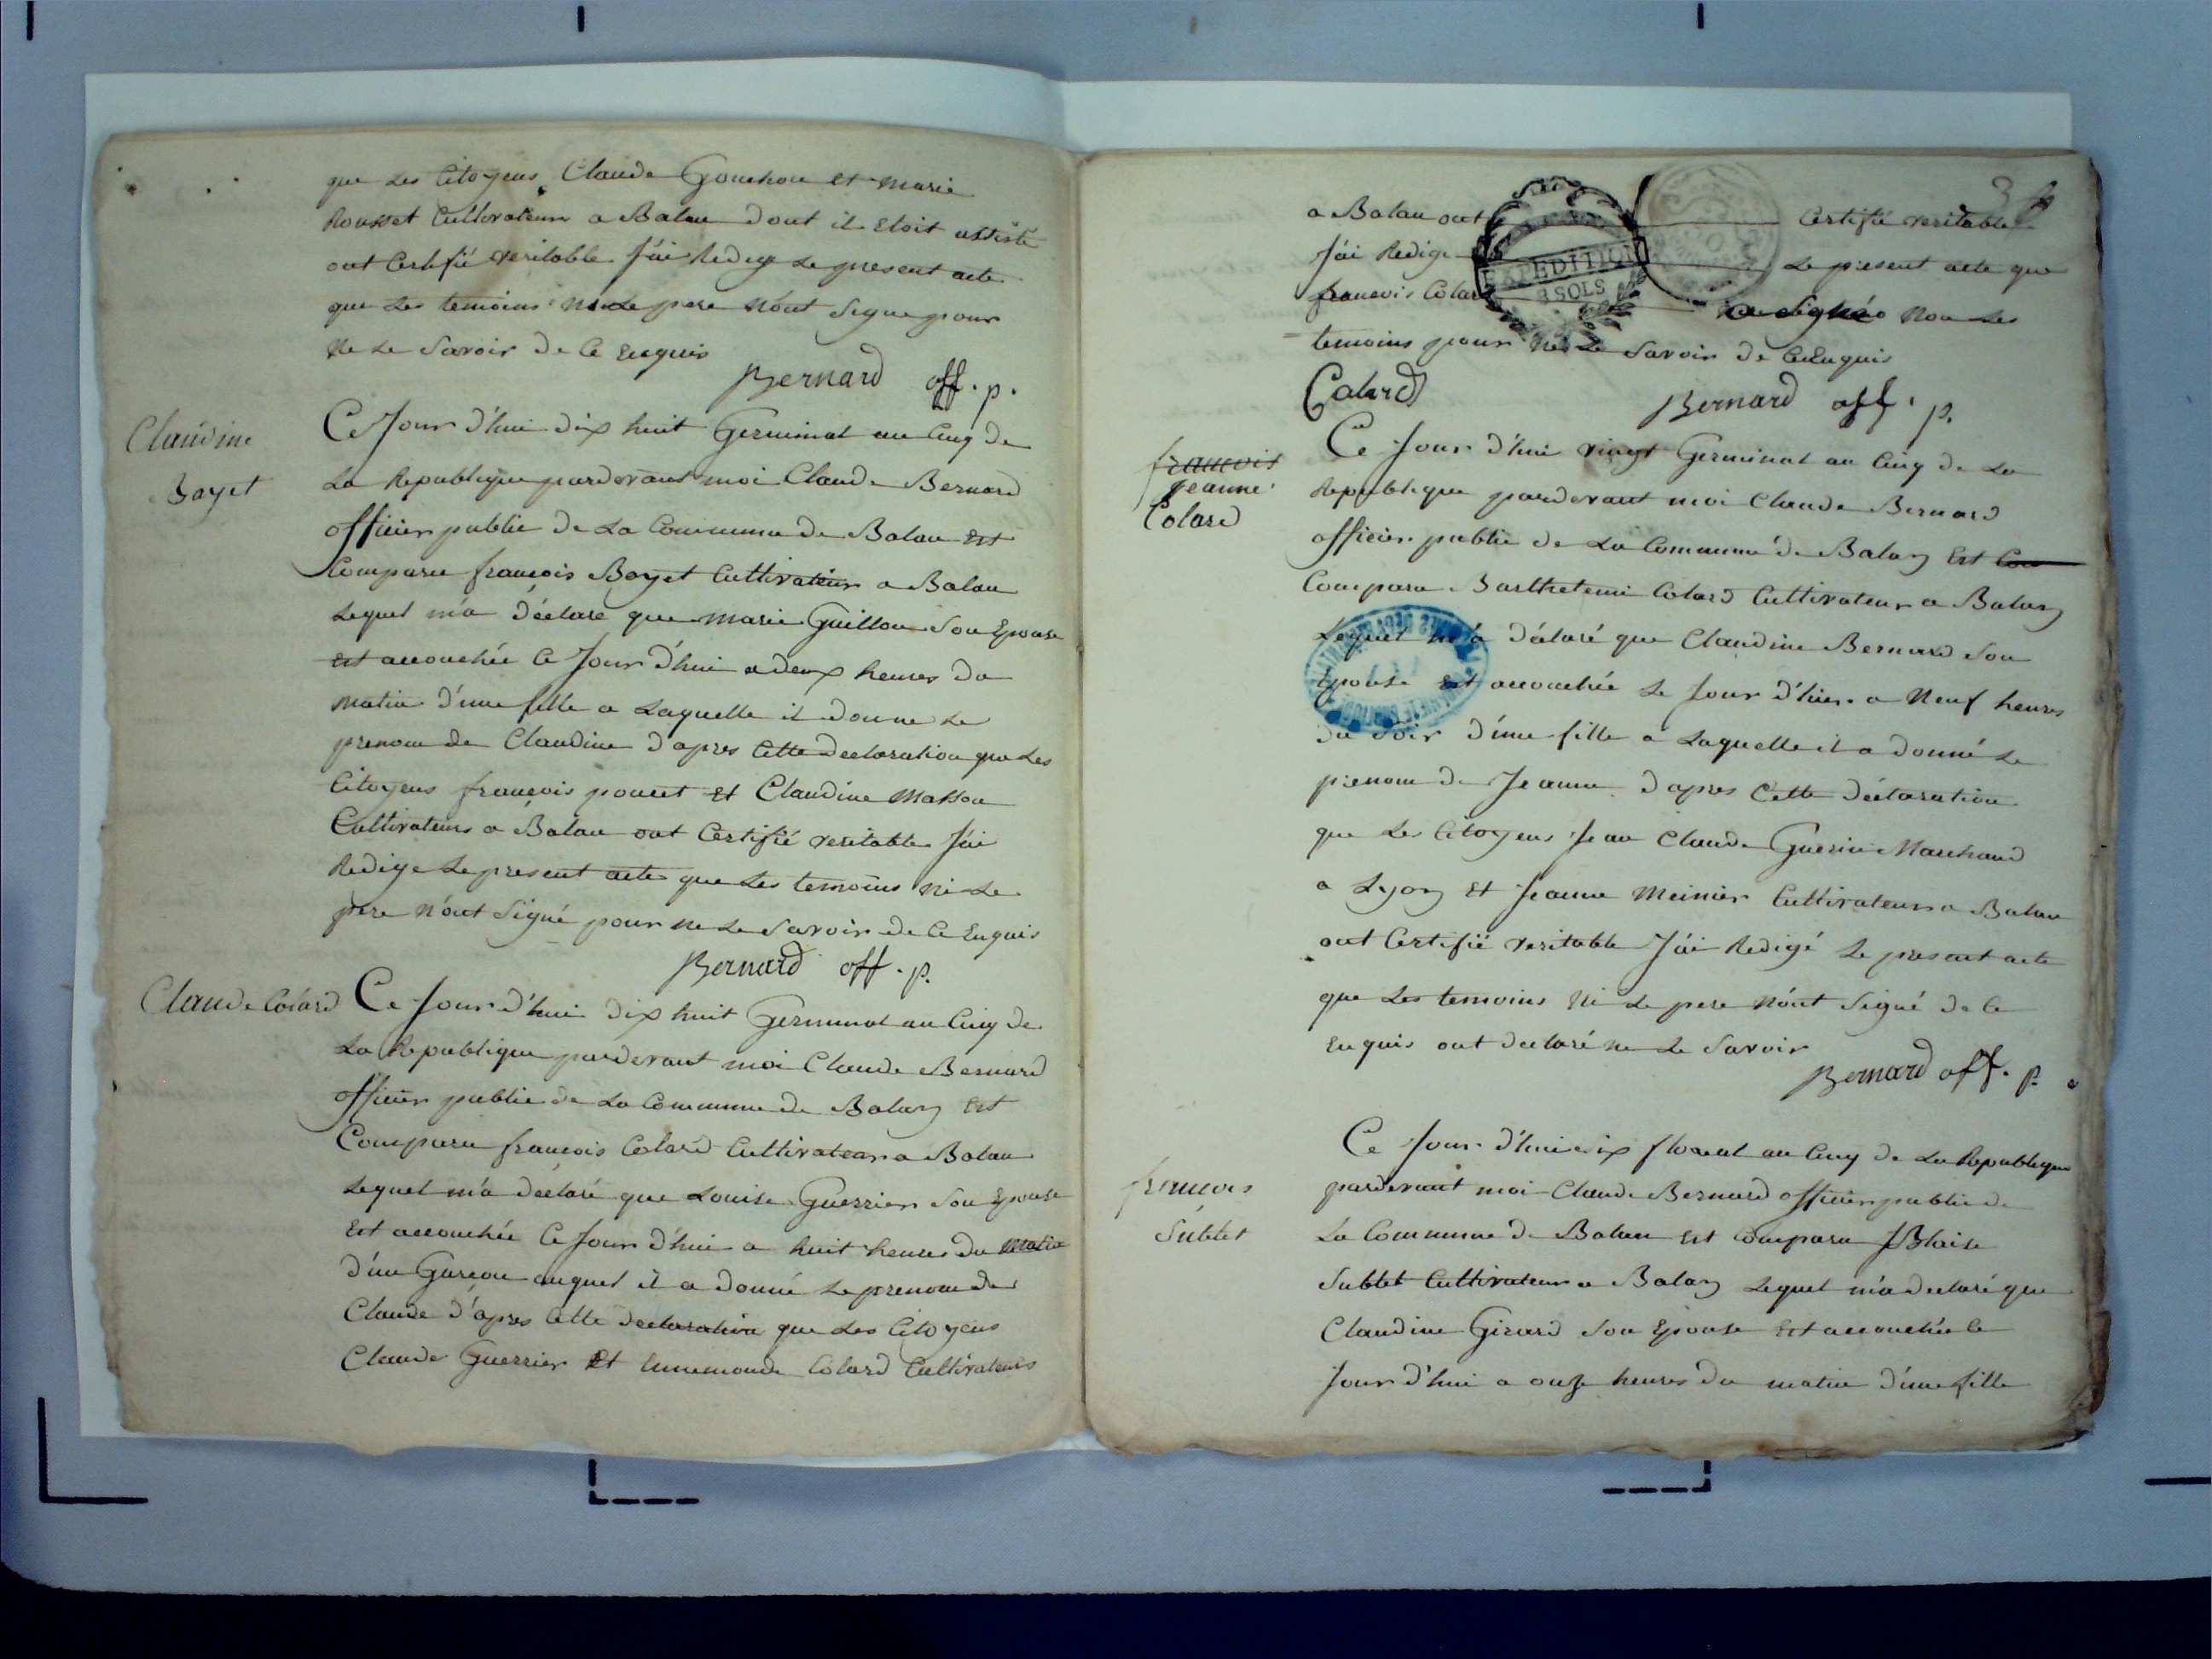 que Les Citoyens Claude Gouchon et marie
Rousset Cultivateurs a Balan dont il Etoit assisté
ont Certifié veritable J'ai Redigé Le present acte
que Les temoins ni Le pere n'ont Signe pour
ne Le Savoir de Ce Enquis
Bernard off. p.
Claudine
Boyet
Ce Jour d'hui dix huit Germinal an Cinq de
La Republique pardevant moi Claude Bernard
officier public de La Commune de Balan Est
Comparu françois Boyet Cultivateur a Balan
Lequel m'a déclaré que marie Guillon Son Epouse
est accouchée Ce Jour d'hui a deux heures du
matin d'une fille a Laquelle il donne Le
prenom de Claudine d'apres Cette declaration que Les
Citoyens françois poncet et Claudine Masson
Cultivateurs a Balan ont Certifié veritable J'ai
Redige Le present acte que Les temoins ni Le
pere n'ont Signé pour ne Le Savoir de Ce Enquis
Bernard off. p.
Claude Colard
Ce Jour d'hui dix huit Germinal an Cinq de
La Republique pardevant moi Claude Bernard
officier public de La Commune de Balan Est
Comparu françois Colard Cultivateur a Balan
Lequel m'a déclaré que Louise Guerrier Son Epouse
Est accouchée Ce Jour d'hui a huit heures du matin
d'un Garçon auquel il a donné Le prenom de
Claude d'apres Cette declaration que Les Citoyens
Claude Guerrier Et Ennemonde Colard Cultivateurs
a Balan ont Certifié veritable
J'ai Redige Le present acte que
françois Colard a Signé Non Les
temoins pour ne Le Savoir de Ce Enquis
EXPEDITION
3 SOLS
Colard
Bernard off. p.
francois
jeanne
Colard
Ce Jour d'hui vingt Germinal an Cinq de La
Republique pardevant moi Claude Bernard
officier public de La Commune de Balan Est Com
Comparu Barthelemi Colard Cultivateur a Balan
Lequel m'a déclaré que Claudine Bernard Son
Epouse Est accouchée Le Jour d'hier a Neuf heures
du Soir d'une fille a Laquelle il a donné Le
prenom de Jeanne d'apres Cette déclaration
que Les Citoyens Jean Claude Guerin Marchand
a Lyon Et Jeanne Meinier Cultivateurs a Balan
ont Certifié veritable J'ai Redigé Le present acte
que Les temoins Ni Le pere n'ont Signé de Ce
Enquis ont declaré ne Le Savoir
Bernard off. p.
francois
Sublet
Ce Jour d'hui dix floreal an Cinq de La Republique
pardevant moi Claude Bernard officier public de
La Commune de Balan Est Comparu Blaise
Sublet Cultivateur a Balan Lequel m'a declaré que
Claudine Girard Son Epouse Est accouchée Ce
Jour d'hui a onze heures du matin d'une fille